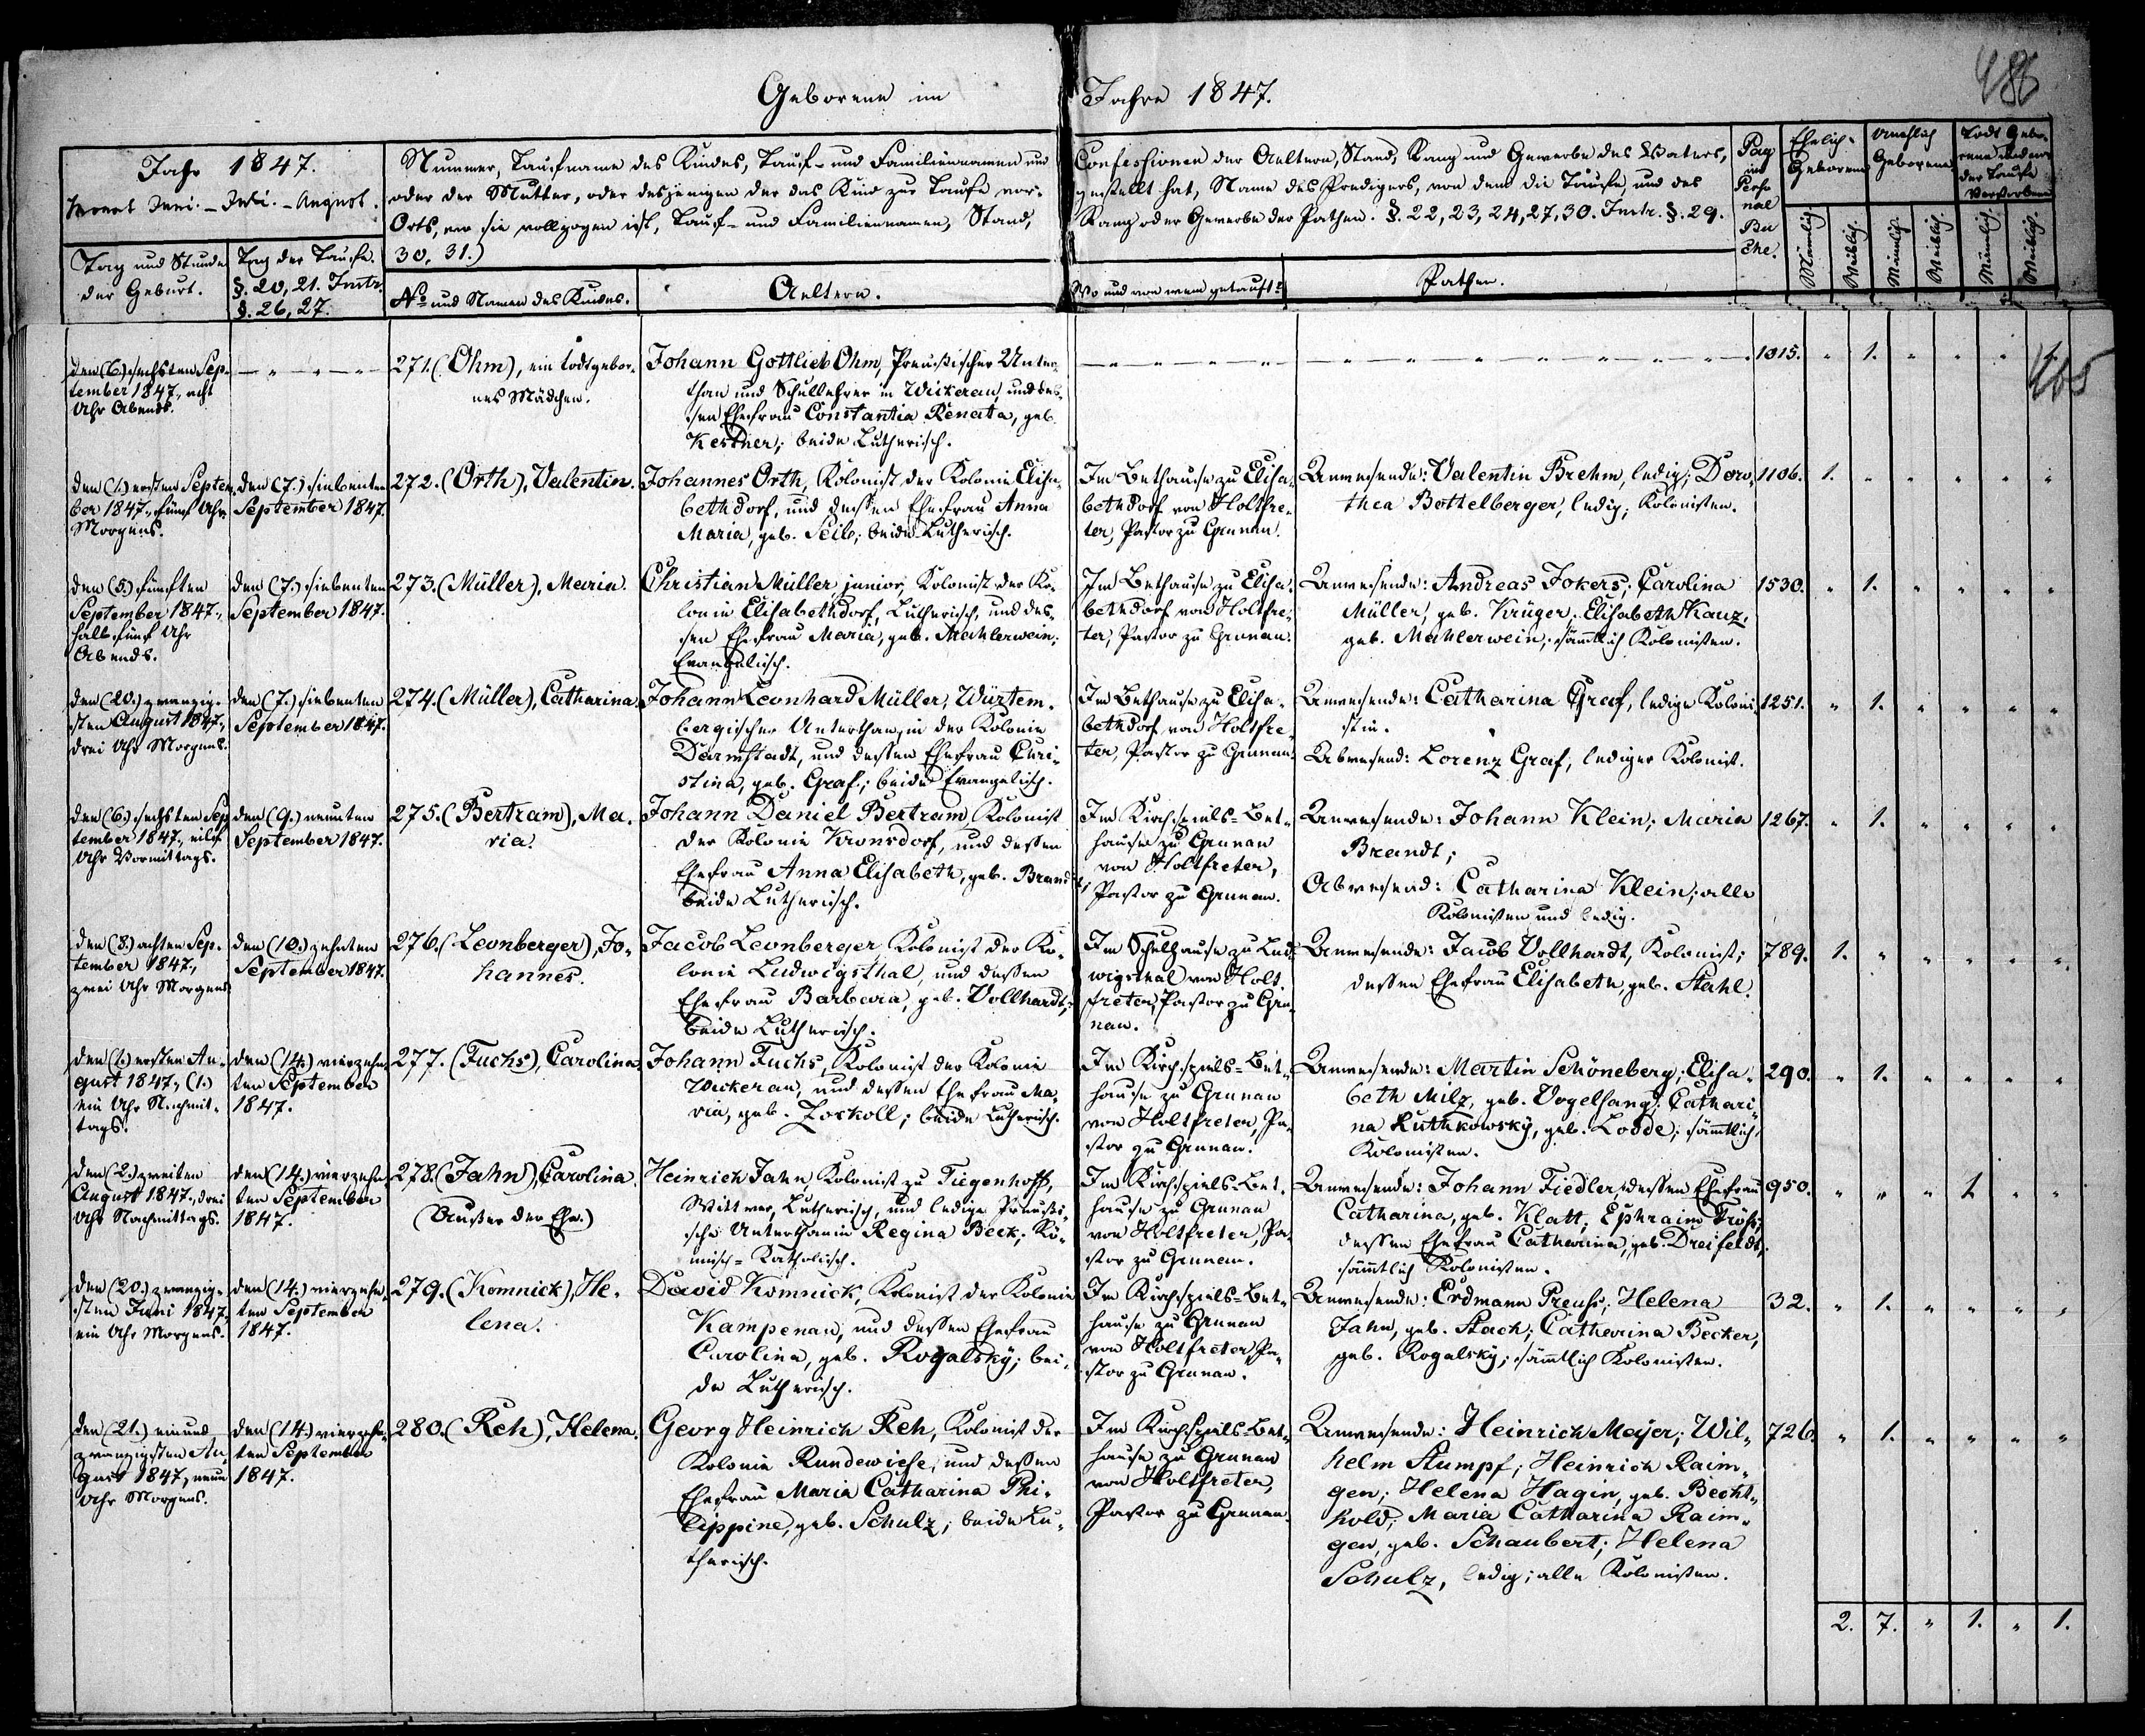 486
Geborene im Jahre 1847.
Jahr 1847.
Monat Juni. - Juli. - August.
Tag und Stunde
der Geburt.
Tag der Taufe.
§. 20, 21. Instr.
§. 26, 27.
Nummer, Taufname des Kindes, Tauf- und Familiennamen und
oder der Mutter, oder desjenigen der das Kind zur Taufe vor-
Orts, wo sie vollzogen ist, Tauf- und Familiennamen, Stand,
30, 31.)
No und Namen des Kindes.
Aeltern.
Confessionen der Aeltern, Stand, Rang und Gewerbe des Vaters,
gestellt hat, Name des Predigers, von dem die Taufe und des
Rang oder Gewerbe der Pathen. §. 22, 23, 24, 27, 30. Instr. §. 29.
Wo und von wem getauft?
Pathen.
Pag
im
Perso
nal
Bu
che.
Ehelich-
Geborene
Unehlich
Geborene
Todt Gebo-
rene und vor
der Taufe
Verstorbene
Männlich.
Weiblich.
Männlich.
Weiblich.
Männlich.
Weiblich.
den (6.) sechsten Sep-
tember 1847., acht
Uhr Abends.
271. (Ohm), ein todtgebor-
nes Mädchen.
Johann Gottlieb Ohm, Preußischer Unter-
than und Schullehrer in Wickerau, und des-
sen Ehefrau Constantia Renata, geb.
Kestner; beide Lutherisch.
1015. " 1. " " " 1.
465
den (1.) ersten Septem-
ber 1847., fünf Uhr
Morgens.
den (7.) siebenten
September 1847.
272. (Orth), Valentin.
Johannes Orth, Kolonist der Kolonie Elisa-
bethdorf, und dessen Ehefrau Anna
Maria, geb. Seib; beide Lutherisch.
Im Bethause zu Elisa-
bethdorf von Holtfre-
ter, Pastor zu Grunau.
Anwesende: Valentin Brehm, ledig; Doro-
thea Bottelberger, ledig; Kolonisten.
1106. 1. " " " " "
den (5.) fünften
September 1847.,
halb fünf Uhr
Abends.
den (7.) siebenten
September 1847.
273. (Müller), Maria.
Christian Müller, junior, Kolonist der Ko-
lonie Elisabethdorf, Lutherisch, und des-
sen Ehefrau Maria, geb. Mahlerwein;
Evangelisch.
Im Bethause zu Elisa-
bethdorf von Holtfre-
ter, Pastor zu Grunau.
Anwesende: Andreas Jokers; Carolina
Müller, geb. Krüger; Elisabeth Kanz,
geb. Mahlerwein; sämtlich Kolonisten.
1530. " 1. " " " "
den (20.) zwanzig-
sten August 1847.,
drei Uhr Morgens.
den (7.) siebenten
September 1847.
274. (Müller), Catharina.
Johann Leonhard Müller, Würtem-
bergischer Unterthan, in der Kolonie
Darmstadt, und dessen Ehefrau Chri-
stina, geb. Graf; beide Evangelisch.
Im Bethause zu Elisa-
bethdorf von Holtfre-
ter, Pastor zu Grunau.
Anwesende: Catharina Graf, ledige Koloni-
stin.
Abwesend: Lorenz Graf, lediger Kolonist.
1251. " 1. " " " "
den (6.) sechsten Sep-
tember 1847., eilf
Uhr Vormittags.
den (9.) neunten
September 1847.
275. (Bertram), Ma-
ria.
Johann Daniel Bertram, Kolonist
der Kolonie Kronsdorf, und dessen
Ehefrau Anna Elisabeth, geb. Brandt;
beide Lutherisch.
Im Kirchspiels-Bet-
hause zu Grunau
von Holtfreter,
Pastor zu Grunau.
Anwesende: Johann Klein; Maria
Brandt;
Abwesend: Catharina Klein; alle
Kolonisten und ledig.
1267. " 1. " " " "
den (8.) achten Sep-
tember 1847.,
zwei Uhr Morgens
den (10.) zehnten
September 1847.
276. (Leonberger), Jo-
hannes.
Jacob Leonberger, Kolonist der Ko-
lonie Ludwigsthal, und dessen
Ehefrau Barbara, geb. Vollhardt;
beide Lutherisch.
Im Schulhause zu Lud-
wigsthal von Holt-
freter, Pastor zu Gru-
nau.
Anwesende: Jacob Vollhardt, Kolonist;
dessen Ehefrau Elisabeth, geb. Stahl.
789. 1. " " " " "
den (1.) ersten Au-
gust 1847., (1.)
ein Uhr Nachmit-
tags.
den (14.) vierzehn-
ten September
1847.
277. (Fuchs), Carolina.
Johann Fuchs, Kolonist der Kolonie
Wickerau, und dessen Ehefrau Ma-
ria, geb. Zoskoll; beide Lutherisch.
Im Kirchspiels-Bet-
hause zu Grunau
von Holtfreter, Pa-
stor zu Grunau.
Anwesende: Martin Schöneberg; Elisa-
beth Milz, geb. Vogelsang; Cathari-
na Ruthkowsky, geb. Lodde; sämtlich
Kolonisten.
290. " 1. " " " "
den (2.) zweiten
August 1847., drei
Uhr Nachmittags.
den (14.) vierzehn-
ten September
1847.
278. (Jahn), Carolina.
(Außer der Ehe.)
Heinrich Jahn, Kolonist zu Tiegenhoff,
Wittwer, Lutherisch, und ledige Preußi-
sche Unterthanin Regina Beck, Rö-
misch-Katholisch.
Im Kirchspiels-Bet-
hause zu Grunau
von Holtfreter, Pa-
stor zu Grunau.
Anwesende: Johann Fiedler, dessen Ehefrau
Catharina, geb. Klatt; Ephraim
dessen Ehefrau Catharina, geb. Dreifeldt;
sämtlich Kolonisten.
950. " " " 1. " "
den (20.) zwanzig-
sten Juni 1847.,
ein Uhr Morgens.
den (14.) vierzehn-
ten September
1847.
279. (Komnick), He-
lena.
David Komnick, Kolonist der Kolonie
Kampenau, und dessen Ehefrau
Carolina, geb. Rogalsky; bei-
de Lutherisch.
Im Kirchspiels-Bet-
hause zu Grunau
von Holtfreter, Pa-
stor zu Grunau.
Anwesende: Erdmann Preuhs; Helena
Jahn, geb. Stach; Catharina Becker,
geb. Rogalsky; sämtlich Kolonisten.
32. " 1. " " " "
den (21.) einund
zwanzigsten Au-
gust 1847., neun
Uhr Morgens.
den (14.) vierzehn-
ten September
1847.
280. (Reh), Helena.
Georg Heinrich Reh, Kolonist der
Kolonie Rundewiese, und dessen
Ehefrau Maria Catharina Phi-
lippine, geb. Schulz; beide Lu-
therisch.
Im Kirchspiels-Bet-
hause zu Grunau
von Holtfreter,
Pastor zu Grunau.
Anwesende: Heinrich Meyer; Wil-
helm Stumpf; Heinrich Raim-
gen; Helena Hagin, geb. Becht-
hold; Maria Catharina Raim-
gen, geb. Schaubert; Helena
Schulz, ledig; alle Kolonisten.
726. " 1. " " " "
2. 7. " 1. " 1.